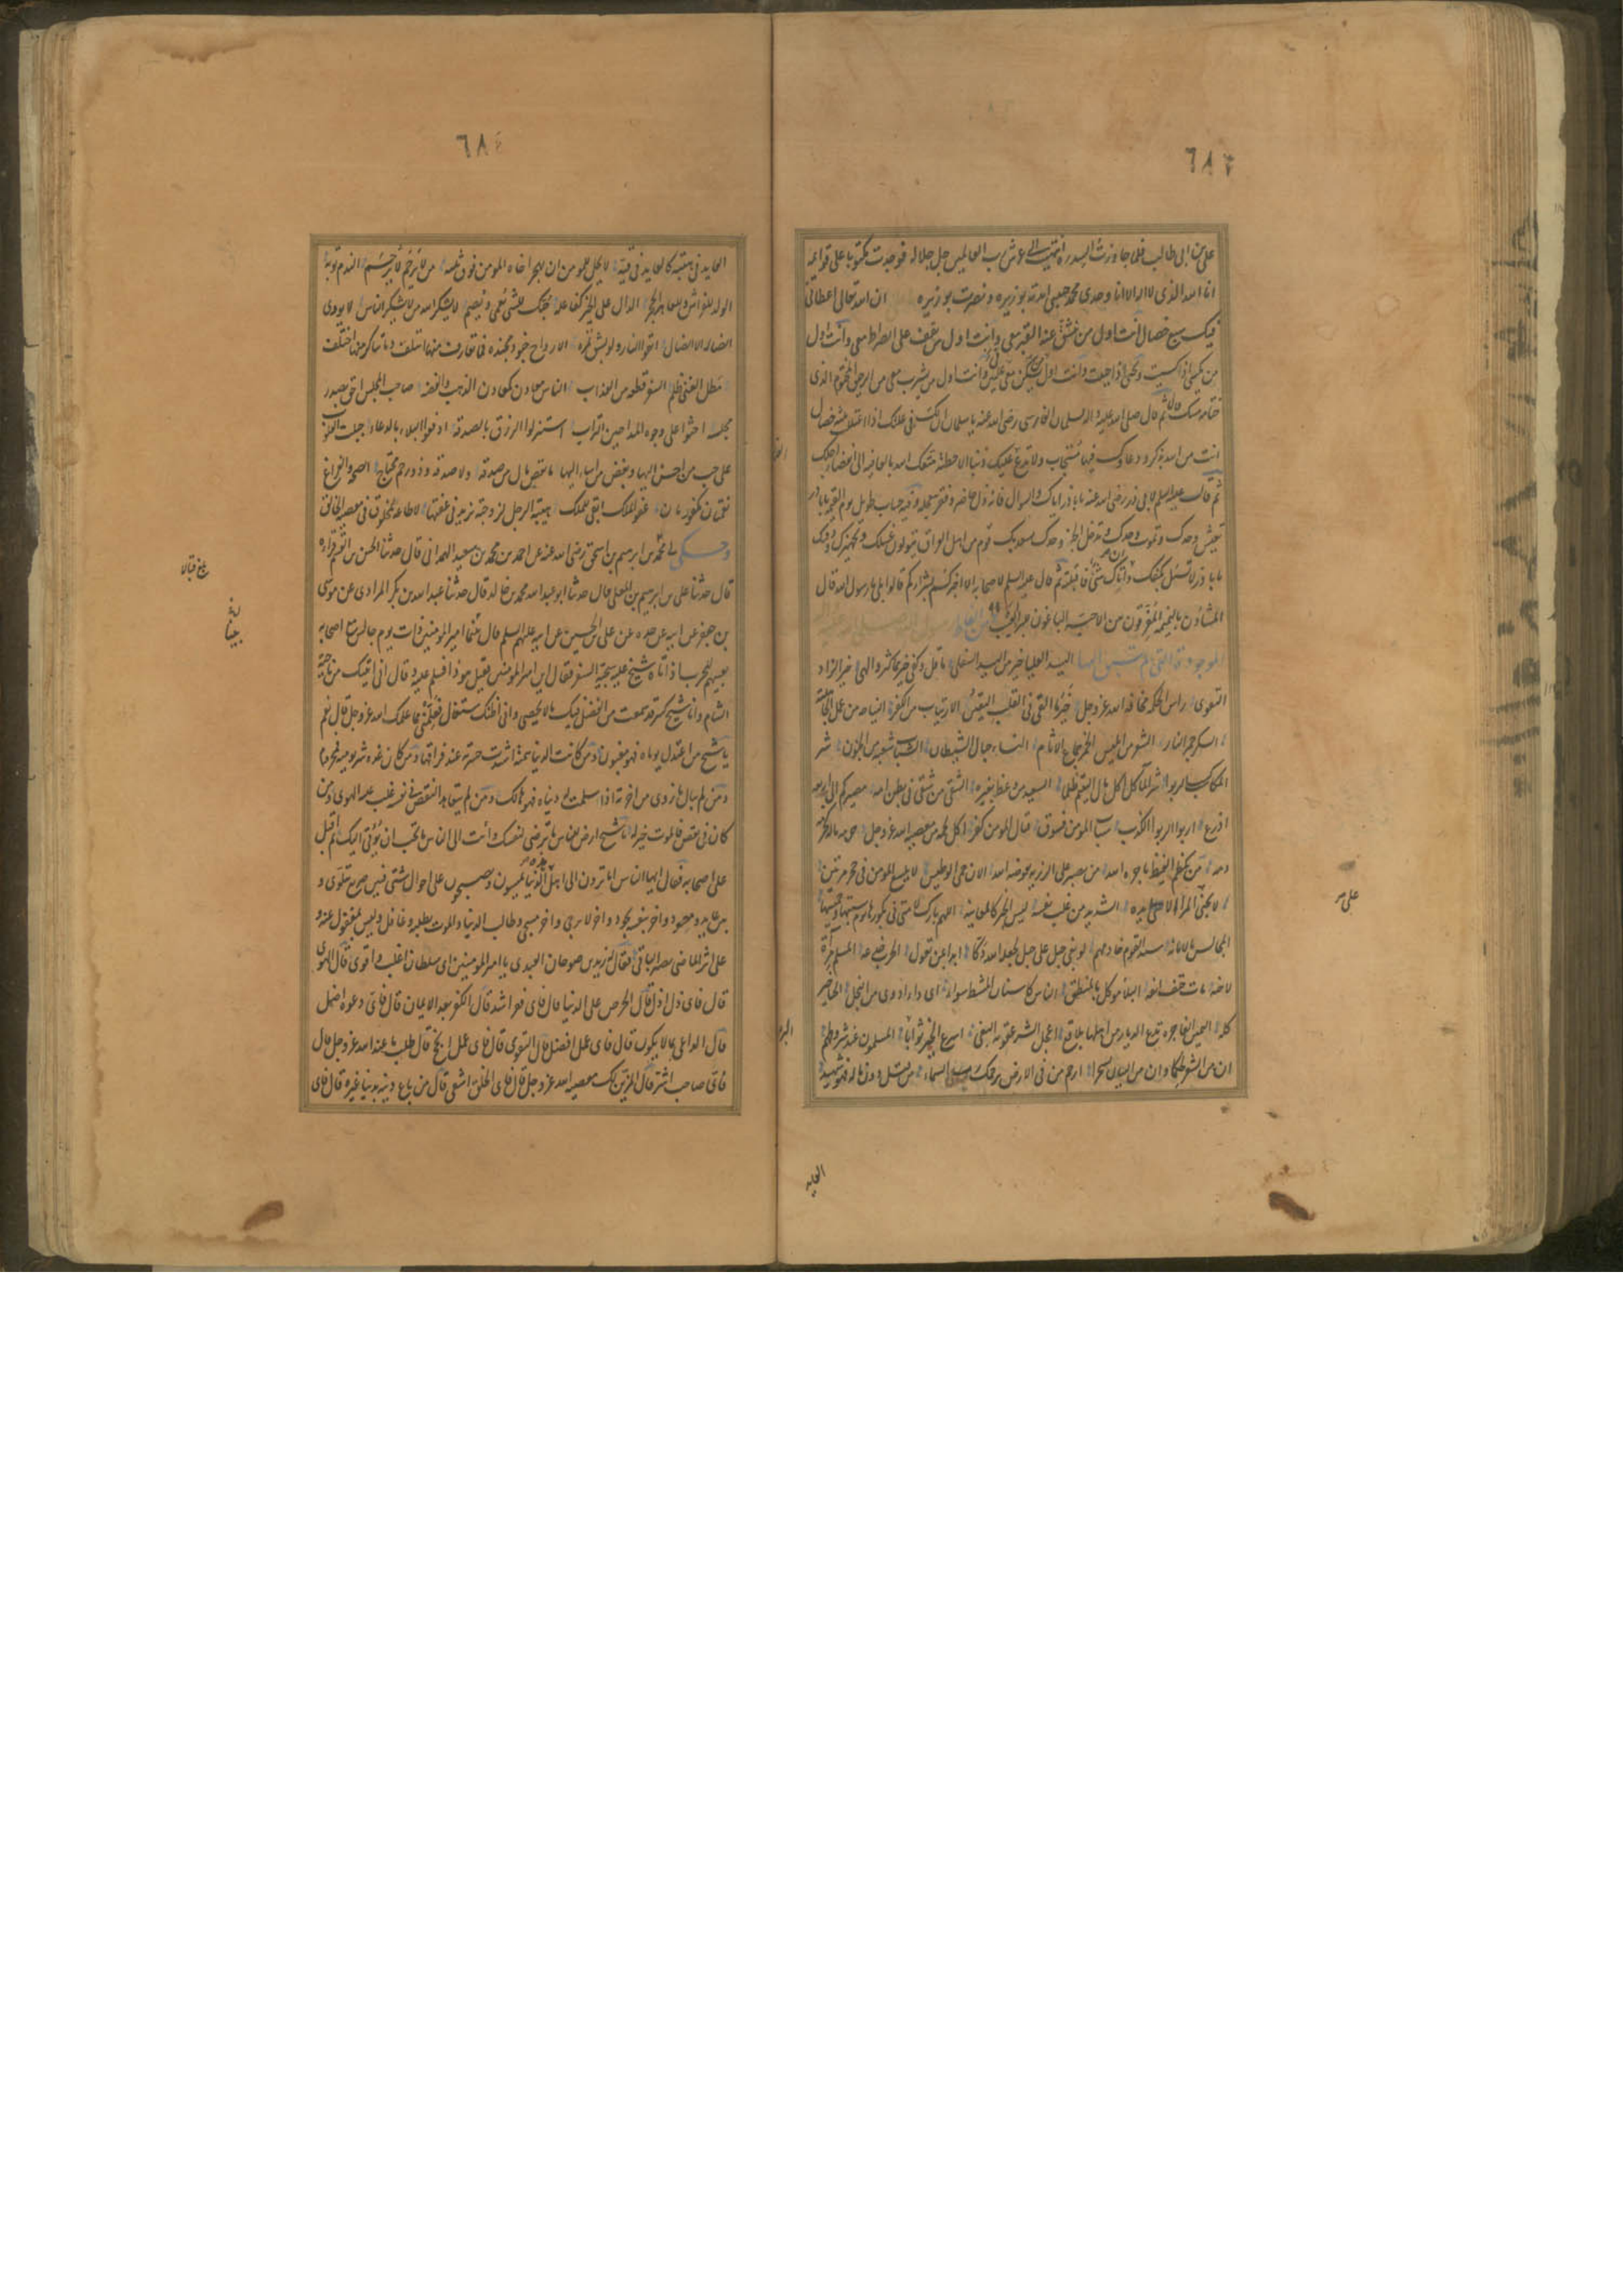 ٦٨٣
علي بن ابي طالب فلما جاوزت السدره انتهيت الى عرش رب العالمين جل جلاله فوجدت مكتوبا على قوائمه
انا الله الذي لا اله الا انا وحدي محمد حبيبي ايدته بوزيره و نصرته بوزيره ان الله تعالى اعطاني
فيك سبع خصال انت اول من ينشق عنه القبر معي وانت اول من يقف على الصراط معي وانت اول
من يكسى اذا كسيت ويحيى اذا حييت وانت اول من يسكن معي عليين وانت اول من يشرب معي من الرحيق المختوم الذي
ختامه مسك ثم قال صلى الله عليه واله لسلمان الفارسي رضي الله عنه يا سلمان ان لك في علتك اذا اعتللت ثلث خصال
انت من الله بذكر ودعاوك فيها مستجاب ولا تدع عليك ذنبا الا حطته متعك الله بالعافيه الى انقضاء اجلك
ثم قال عليه السلم لابي ذر رضي الله عنه يا باذر اياك والسوال فانه ذل حاضر وفقر تتعجله وفيه حساب طويل يوم القيمه يا باذر
تعيش وحدك وتموت وحدك وتدخل الجنه وحدك يسعد بك قوم من اهل العراق يتولون غسلك وتجهيزك ودفنك
يا باذر لا تسئل بكفك وان اتاك شئ فاقبله ثم قال عليه السلم لاصحابه الا اخبركم بشراركم قالوا بلى يا رسول الله قال
المشاون بالنميمه المفرقون بين الاحبه الباغون للبراء العيب
الموجزه التي لم يسبق اليها اليد العليا خير من اليد السفلى ما قل وكفى خير مما كثر والهى خير الزاد
التقوى راس الحكمه مخافه الله عز وجل خير ما القي في القلب اليقين الارتياب من الكفر النياحه من عمل الجاهليه
السكر جمر النار الشعر من ابليس الخمر جماع الاثام النساء حباله الشيطان الشباب شعبه من الجنون شر
المكاسب الربوا شر الماكل اكل مال اليتيم ظلما السعيد من وعظ بغيره الشقي من شقي في بطن امه مصيركم الى اربعه
اذرع اربى الربوا الكذب سباب المومن فسوق قتال المومن كفر اكل لحمه من معصيه الله عز وجل حرمه ماله كحرمه
دمه من يكظم الغيظ ياجره الله من يصبر على الرزيه يعوضه الله الان حمي الوطيس لا يلسع المومن من جحر مرتين
لا يجني على المرء الا يده الشديد من غلب نفسه ليس الخبر كالمعاينه اللهم بارك لامتي في بكورها يوم سبتها وخميسها
المجالس بالامانه سيد القوم خادمهم لو بغى جبل على جبل لجعله الله دكا ابدا بمن تعول الحرب خدعه المسلم مرآه
لاخيه مات حتف انفه البلاء موكل بالمنطق الناس كاسنان المشط سواء اي داء ادوى من البخل الحياء خير
كله اليمين الفاجره تدع الديار من اهلها بلاقع اعجل الشر عقوبه البغي اسرع الخير ثوابا المسلمون عند شروطهم
ان من الشعر لحكما وان من البيان لسحرا ارحم من في الارض يرحمك من في السماء من قتل دون ماله فهو شهيد
العايد
علي
٦٨٤
العايد في هبته كالعايد في قيئه لا يحل لمومن ان يهجر اخاه المومن فوق ثلثه من لا يرحم لا يرحم الندم توبه
الولد للفراش وللعاهر الحجر الدال على الخير كفاعله حبك للشئ يعمي ويصم لا يشكر الله من لا يشكر الناس لا يووي
الضاله الا الضال اتقوا النار ولو بشق تمره الارواح جنود مجنده فما تعارف منها ائتلف وما تناكر منها اختلف
مطل الغني ظلم السفر قطعه من العذاب الناس معادن كمعادن الذهب والفضه صاحب المجلس احق بصدر
مجلسه احثوا على وجوه المداحين التراب استنزلوا الرزق بالصدقه ادفعوا البلاء بالدعاء جبلت القلوب
على حب من احسن اليها وبغض من اساء اليها ما نقص مال من صدقه ولا صدقه وذو رحم محتاج الصحه والفراغ
نعمتان مكفورتان عفو الملك ابقى للملك هيبه الرجل لزوجته تزيد في عفتها لا طاعه لمخلوق في معصيه الخالق
وحكى لي محمد بن ابرهيم بن اسحق رضي الله عنه عن احمد بن محمد بن سعيد الهمداني قال حدثنا الحسن بن القسم قراءه
قال حدثنا علي بن ابرهيم بن المعلى قال حدثنا ابو عبد الله محمد بن خالد قال حدثنا عبد الله بن بكر المرادي عن موسى
بن جعفر عن ابيه عن جده عن علي بن الحسين عن ابيه عليهم السلم قال بينما امير المومنين ذات يوم جالس مع اصحابه
يعبيهم للحرب اذ اتاه شيخ عليه شحبه السفر فقال اين امير المومنين فقيل هو ذا فسلم عليه وقال اني اتيتك من ناحيه
الشام وانا شيخ كبير قد سمعت من الفضل فيك ما لا يحصى واني اظنك ستغتال فعلمني مما علمك الله عز وجل قال نعم
يا شيخ من اعتدل يوماه فهو مغبون ومن كانت الدنيا همته اشتدت حسرته عند فراقها ومن كان غده شر يوميه فمحروم
ومن لم يبال ما زوي من اخرته اذا سلمت له دنياه فهو هالك ومن لم يتعاهد النقص في نفسه غلب عليه الهوى ومن
كان في نقص فالموت خير له يا شيخ ارض للناس ما ترضى لنفسك وائت الى الناس ما تحب ان يؤتى اليك ثم اقبل
على اصحابه فقال ايها الناس اما ترون الى اهل الدنيا يمسون ويصبحون على احوال شتى فبين صريع يتلوى و
بين عايد ومعود واخر بنفسه يجود واخر لا يرجى واخر مسجى وطالب الدنيا والموت يطلبه وغافل وليس بمغفول عنه و
على اثر الماضي يصير الباقي فقال له زيد بن صوحان العبدي يا امير المومنين اي سلطان اغلب واقوى قال الهوى
قال فاي ذل اذل قال الحرص على الدنيا قال فاي فقر اشد قال الكفر بعد الايمان قال فاي دعوه اضل
قال الداعي بما لا يكون قال فاي عمل افضل قال التقوى قال فاي عمل انجح قال طلب ما عند الله عز وجل قال
فاي صاحب اشر قال المزين لك معصيه الله عز وجل قال فاي الخلق اشقى قال من باع دينه بدنيا غيره قال فاي
بلغ قبالا